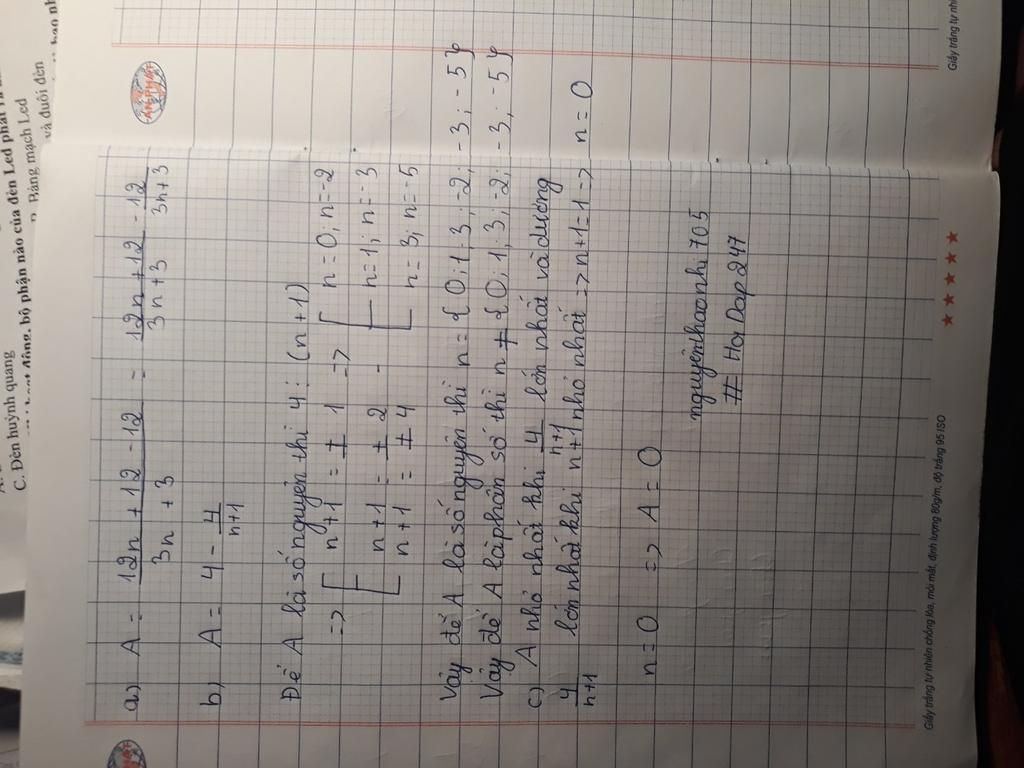 C. Đèn huỳnh quang
bộ phận nào của đèn Led phát
Bảng mạch Led
và đuôi đèn
AN PHÁT
a) A = 12n + 12 - 12 / 3n + 3 = 12n + 12 / 3n + 3 - 12 / 3n + 3
b) A = 4 - 4 / n+1
Để A là số nguyên thì 4 ⋮ (n+1)
=> [ n+1 = ± 1 => [ n = 0; n = -2
n+1 = ± 2 - n = 1; n = -3
n+1 = ± 4 n = 3; n = -5
Vậy để A là số nguyên thì n = {0; 1; 3; -2; -3; -5}
Vậy để A là phân số thì n ≠ {0; 1; 3; -2; -3; -5}
c) A nhỏ nhất khi 4 / n+1 lớn nhất và dương
4 / n+1 lớn nhất khi n+1 nhỏ nhất => n+1 = 1 => n = 0
n = 0 => A = 0
nguyenthaoanhi705
# HoiDap247
Giấy trắng tự nhiên chống lóa, mỏi mắt, định lượng 80g/m, độ trắng 95 ISO
Giấy trắng tự nhi